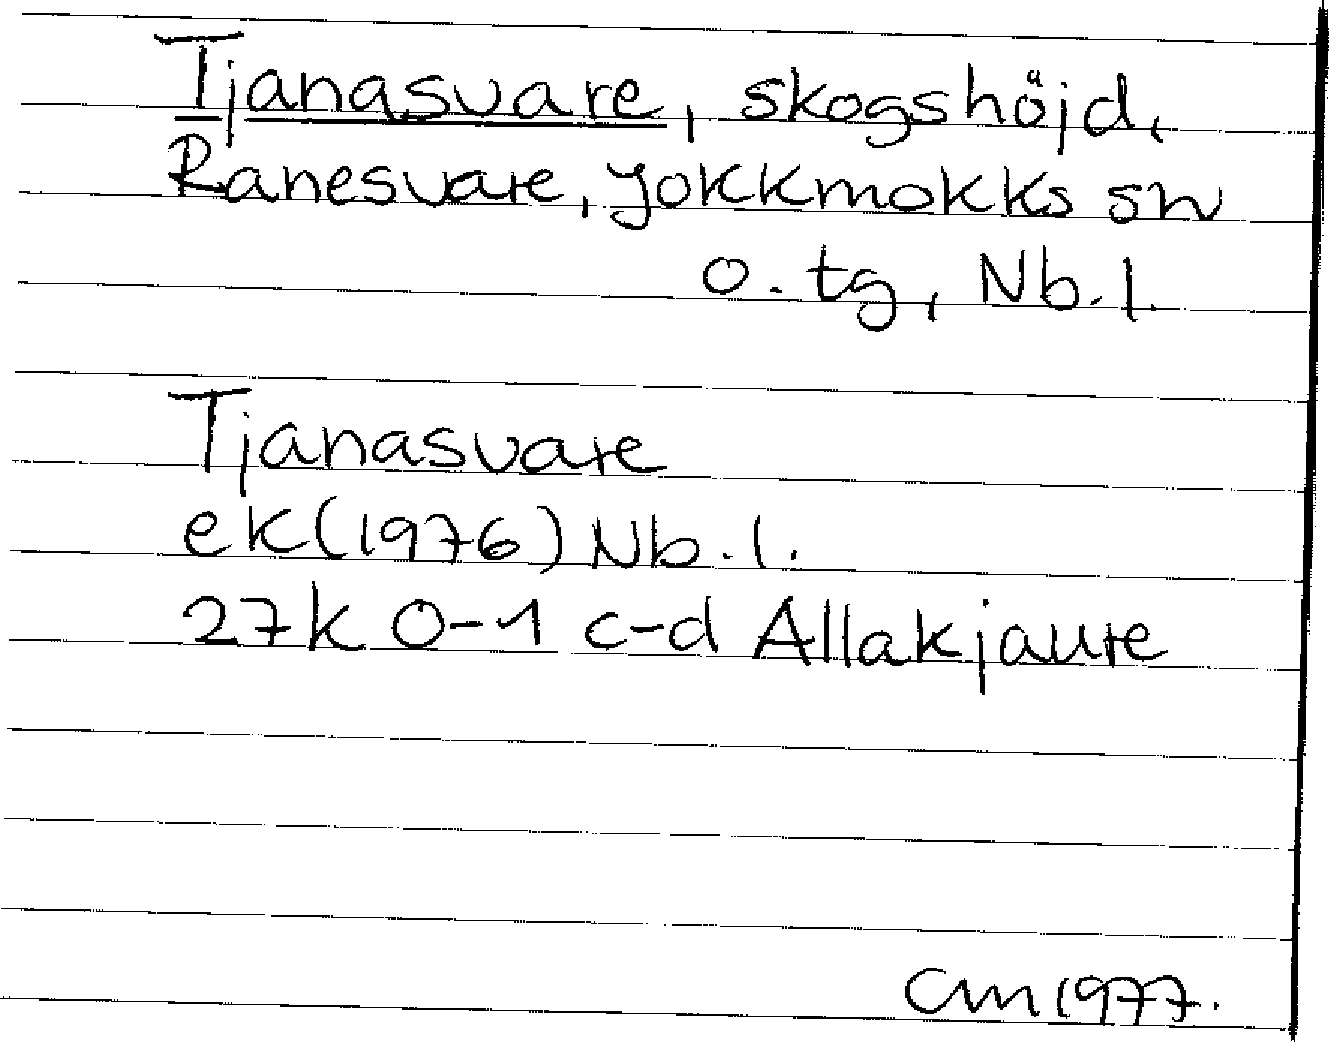 Tjanasvare, skogshöjd,
Ranesvare, Jokkmokks sn
o. tg, Nb.l.
Tjanasvare
ek(1976) Nb.l.
27k 0-1 c-d Allakjaure
CM 1977.